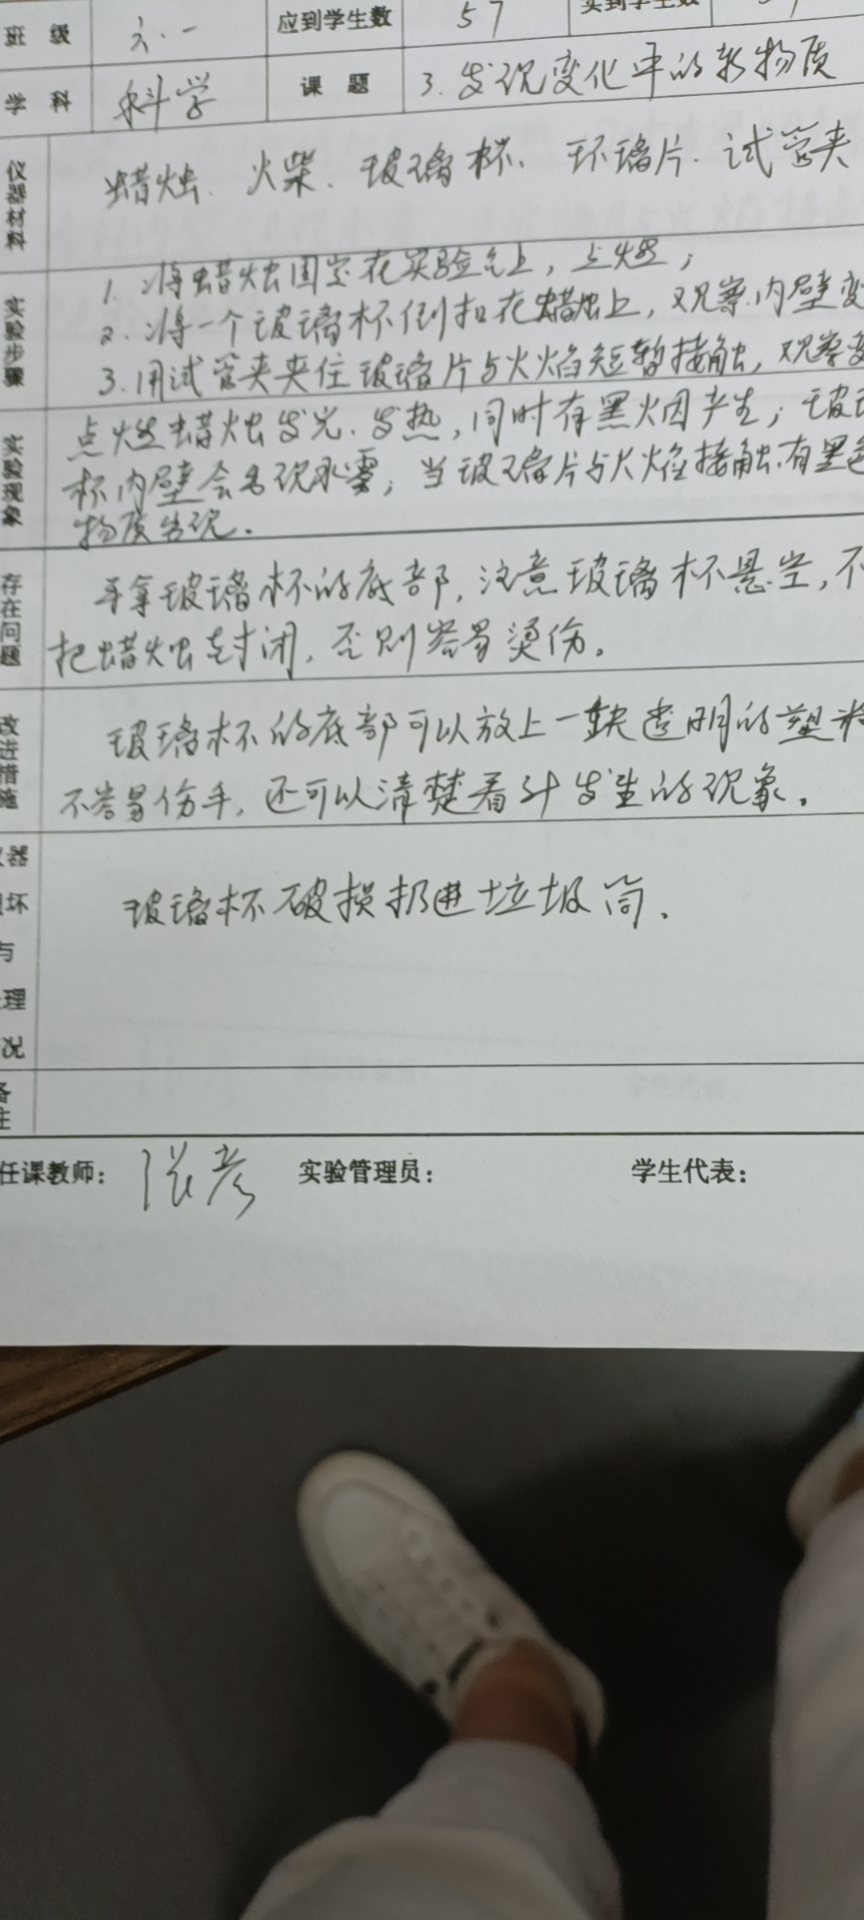 班 级 六.一 应到学生数 57 实到学生数
学 科 科学 课 题 3.发现变化中的新物质
仪器材料 蜡烛、火柴、玻璃杯、环璃片、试管夹
实验步骤 1.将蜡烛固定在实验台上，点燃；
2.将一个玻璃杯倒扣在蜡烛上，观察内壁变
3.用试管夹夹住玻璃片与火焰短暂接触，观察变
实验现象 点燃蜡烛发光、发热，同时有黑烟产生；玻璃
杯内壁会出现水雾；当玻璃片与火焰接触有黑色
物质出现。
存在问题 手拿玻璃杯的底部，注意玻璃杯悬空，不
把蜡烛封闭，否则容易烫伤。
改进措施 玻璃杯的底部可以放上一块透明的塑料
不容易伤手，还可以清楚看到发生的现象。
器
坏
与
理
况
玻璃杯破损扔进垃圾筒.
备注
任课教师： 张 实验管理员： 学生代表：